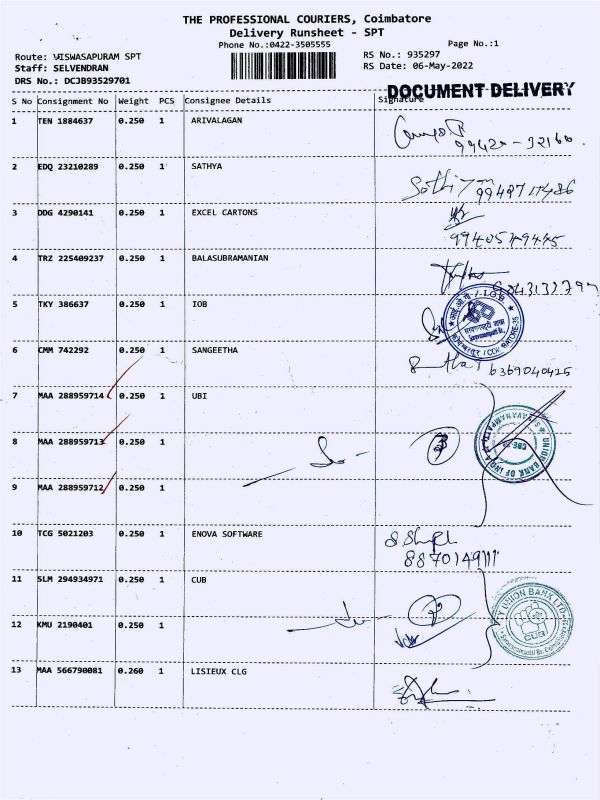 THE PROFESSIONAL COURIERS, Coimbatore
Delivery Runsheet - SPT
Phone No.:0422-3505555
Page No.:1
Route: VISWASAPURAM SPT
RS No.: 935297
Staff: SELVENDRAN
RS Date: 06-May-2022
DRS No.: DCJB93529701
DOCUMENT DELIVERY
S No Consignment No Weight PCS Consignee Details Signature
1 TEN 1884637 0.250 1 ARIVALAGAN
99420-32160
2 EDQ 23210289 0.250 1 SATHYA
3 DDG 4290141 0.250 1 EXCEL CARTONS
4 TRZ 225409237 0.250 1 BALASUBRAMANIAN
5 TKY 386637 0.250 1 IOB
6 CMM 742292 0.250 1 SANGEETHA
6369040425
7 MAA 288959714 0.250 1 UBI
8 MAA 288959713 0.250 1
UNION BANK OF INDIA
9 MAA 288959712 0.250 1
10 TCG 5021203 0.250 1 ENOVA SOFTWARE
8870149111
11 SLM 294934971 0.250 1 CUB
12 KMU 2190401 0.250 1
CUB
13 MAA 566790081 0.260 1 LISIEUX CLG